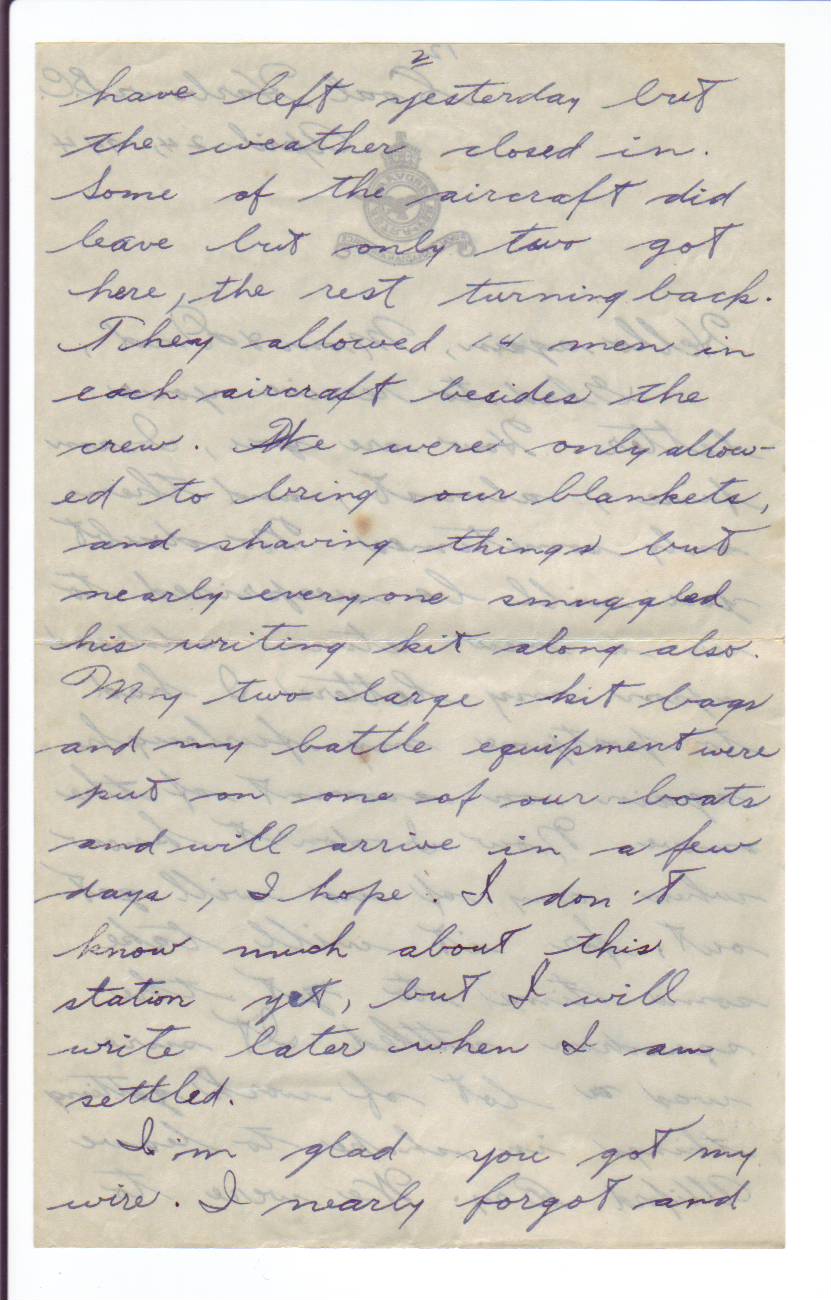 2
have left yesterday but
the weather closed in.
Some of the aircraft did
leave but only two got
here, the rest turning back.
They allowed 14 men in
each aircraft besides the
crew. We were only allow-
ed to bring our blankets,
and shaving things but
nearly everyone smuggled
his writing kit along also.
My two large kit bags
and my battle equipment were
put on one of our boats
and will arrive in a few
days, I hope. I don't
know much about this
station yet, but I will
write later when I am
settled.
I'm glad you got my
wire. I nearly forgot and